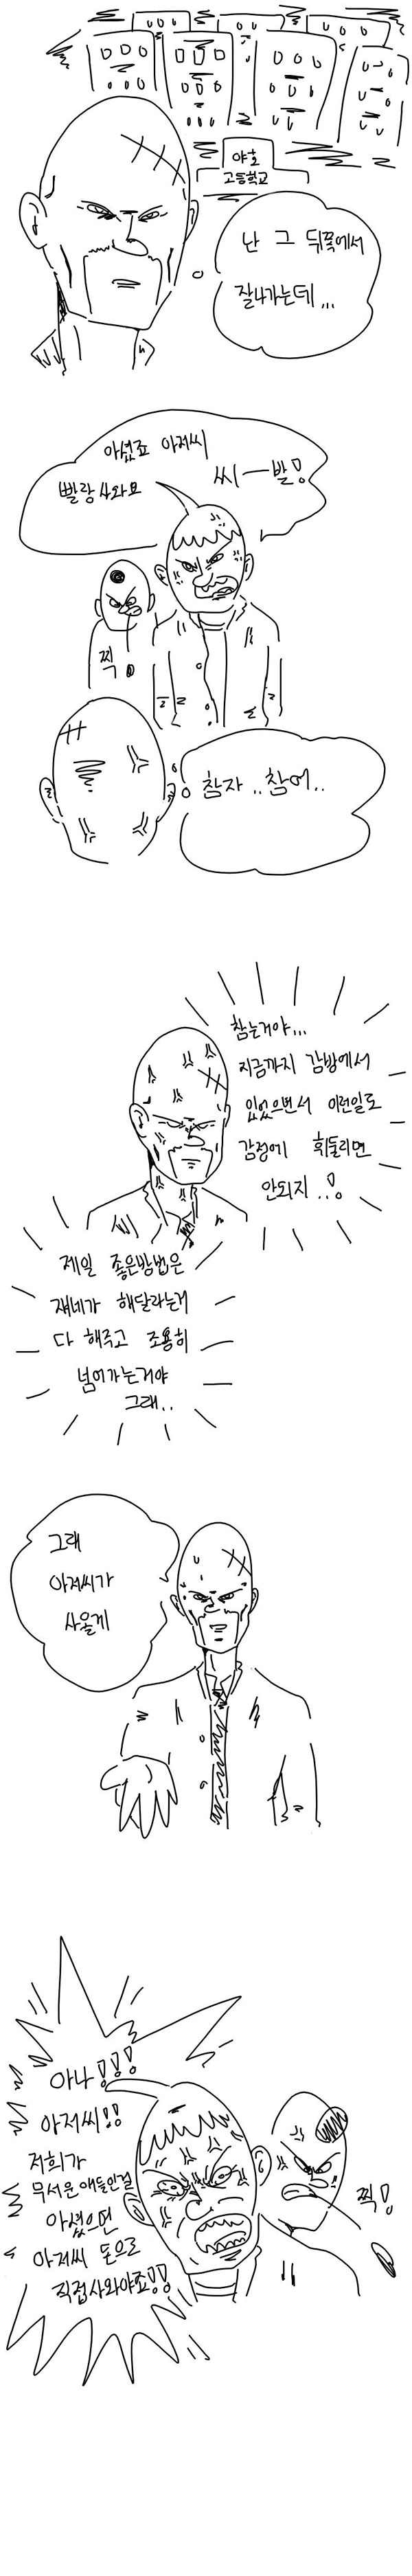 야호
고등학교
난 그 뒤쪽에서
잘나가는데...
아셨죠 아저씨
빨랑 사와요
씨-발!
찍
참자..참어..
참는거야...
지금까지 감방에서
있었으면서 이런일도
감정에 휘둘리면
안되지..!
제일 좋은방법은
쟤네가 해달라는거
다 해주고 조용히
넘어가는거야
그래..
그래
아저씨가
사올게
아나!!!
아저씨!!
저희가
무서운 애들인걸
아셨으면
아저씨 돈으로
직접사와야죠!!
찍!